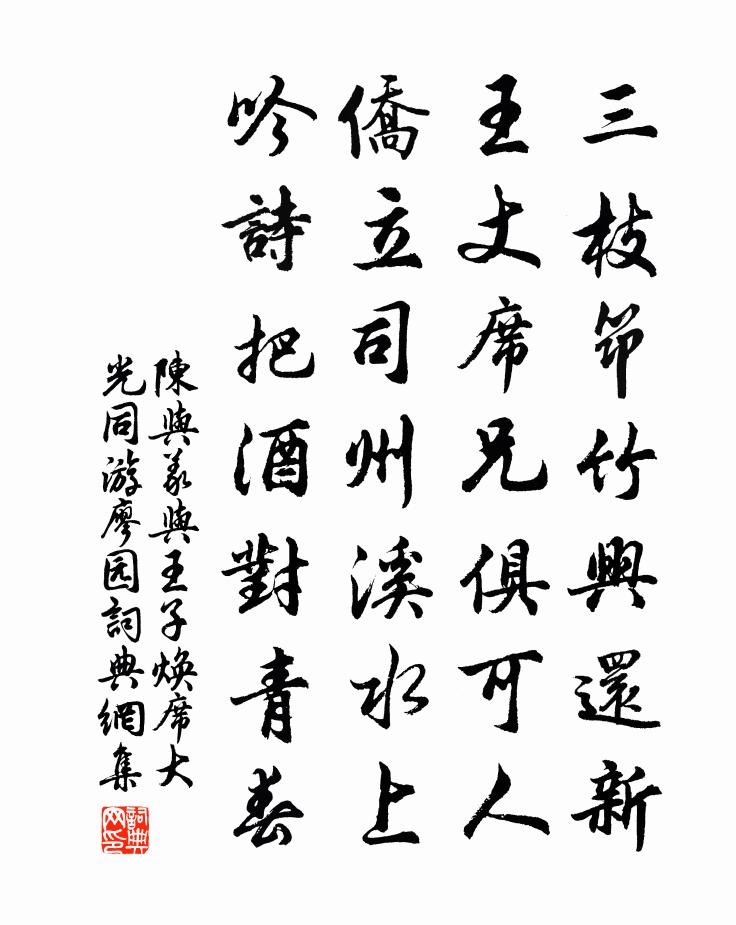 三枝筇竹興還新
王丈席兄俱可人
僑立司州溪水上
吟詩把酒對青春
陳與義與王子煥席大
光同游廖园詞典網集
詞典网印